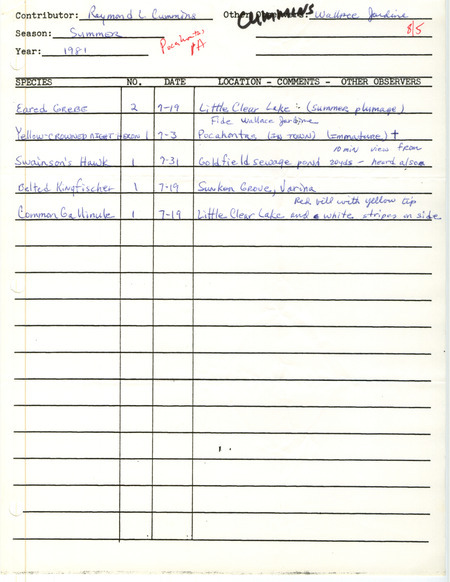 Contributor: Raymond L Cummins Other CUMMINS: Wallace Jardine
Season: Summer Pocahontas 8/5
Year: 1981 PA
SPECIES NO. DATE LOCATION - COMMENTS - OTHER OBSERVERS
Eared Grebe 2 7-19 Little Clear Lake :- (Summer plumage)
Fide Wallace Jardine
Yellow-CROWNED NIGHT HERON 1 7-3 Pocahontas (IN TOWN) (Immature) †
10 min view from
Swainson's Hawk 1 7-31 Goldfield sewage pond 20yds - heard also
Belted Kingfischer 1 7-19 Sunken Grove, Varina
Red bill with yellow tip
Common Gallinule 1 7-19 Little Clear Lake and white stripes on side